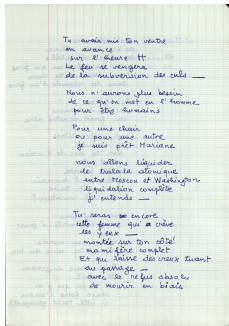 Tu avais mis ton ventre
en avance
sur l'heure H
Le feu se vengera
de la subversion des culs —
Nous n'aurons plus besoin
de ce qu'on met en l'homme
pour être humains
Pour une chair
ou pour une autre
je suis prêt Mariane
nous allons liquider
le tralala atomique
entre Moscou et Washington
liquidation complète
j'entends —
Tu seras encore
cette femme qui crève
les yeux —
montée sur ton côté
mammifère complet
Et qui laisse des creux
au passage —
avec le refus absolu
de mourir en biais